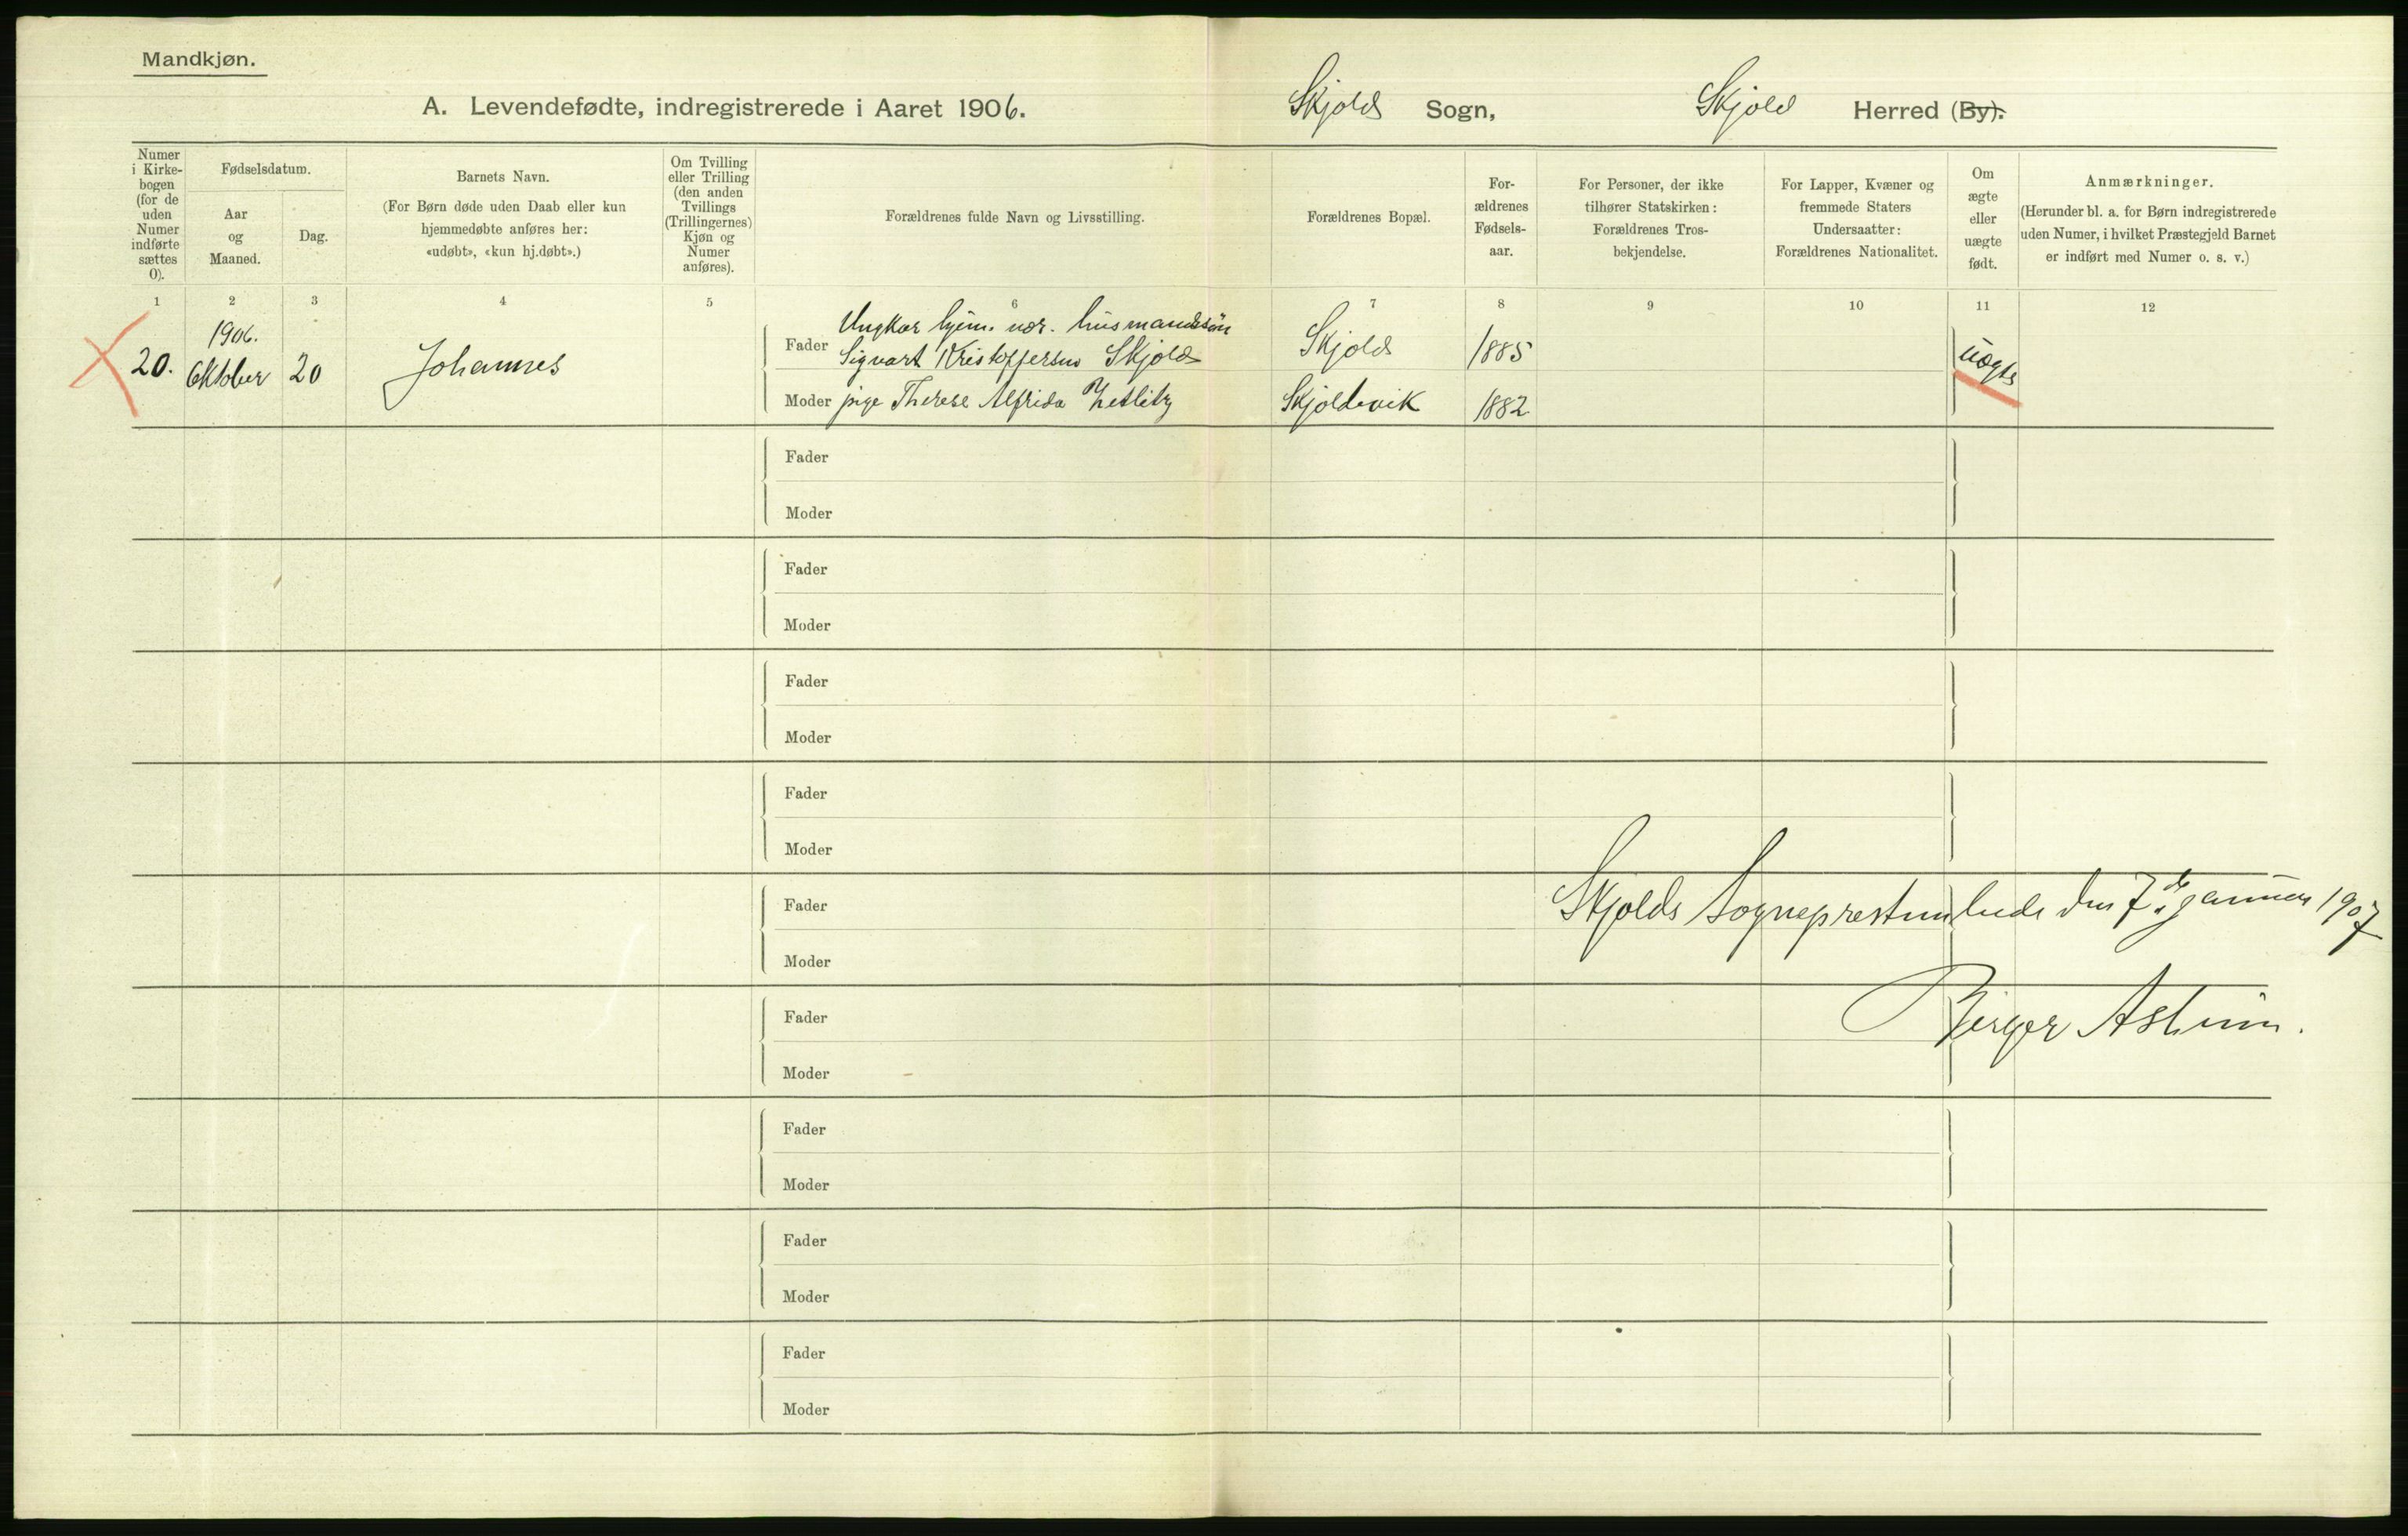 Mandkjøn.
A. Levendefødte, indregistrerede i Aaret 1906.
Skjolds Sogn, Skjold Herred (By).
Numer i Kirkebogen (for de uden Numer indførte sættes 0).
Fødselsdatum.
Aar og Maaned.
Dag.
Barnets Navn.
(For Børn døde uden Daab eller kun hjemmedøbte anføres her: «udøbt», «kun hj.døbt».)
Om Tvilling eller Trilling (den anden Tvillings (Trillingernes) Kjøn og Numer anføres).
Forældrenes fulde Navn og Livsstilling.
Forældrenes Bopæl.
For-
ældrenes
Fødsels-
aar.
For Personer, der ikke
tilhører Statskirken:
Forældrenes Tros-
bekjendelse.
For Lapper, Kvæner og
fremmede Staters
Undersaatter:
Forældrenes Nationalitet.
Om
ægte
eller
uægte
født.
Anmærkninger.
(Herunder bl. a. for Børn indregistrerede
uden Numer, i hvilket Præstegjeld Barnet
er indført med Numer o. s. v.)
1 2 3 4 5 6 7 8 9 10 11 12
20. 1906. Oktober 20 Johannes
Fader Ungkar hjem. vær. husmandssøn
Sigvart Kristoffersen Skjold Skjold 1885 uægte
Moder pige Therese Alfrida Zetlitz Skjoldevik 1882
Fader
Moder
Fader
Moder
Fader
Moder
Fader
Moder
Fader
Moder
Skjolds Sogneprestembede den 7de januar 1907
Fader
Birger Astrim.
Moder
Fader
Moder
Fader
Moder
Fader
Moder